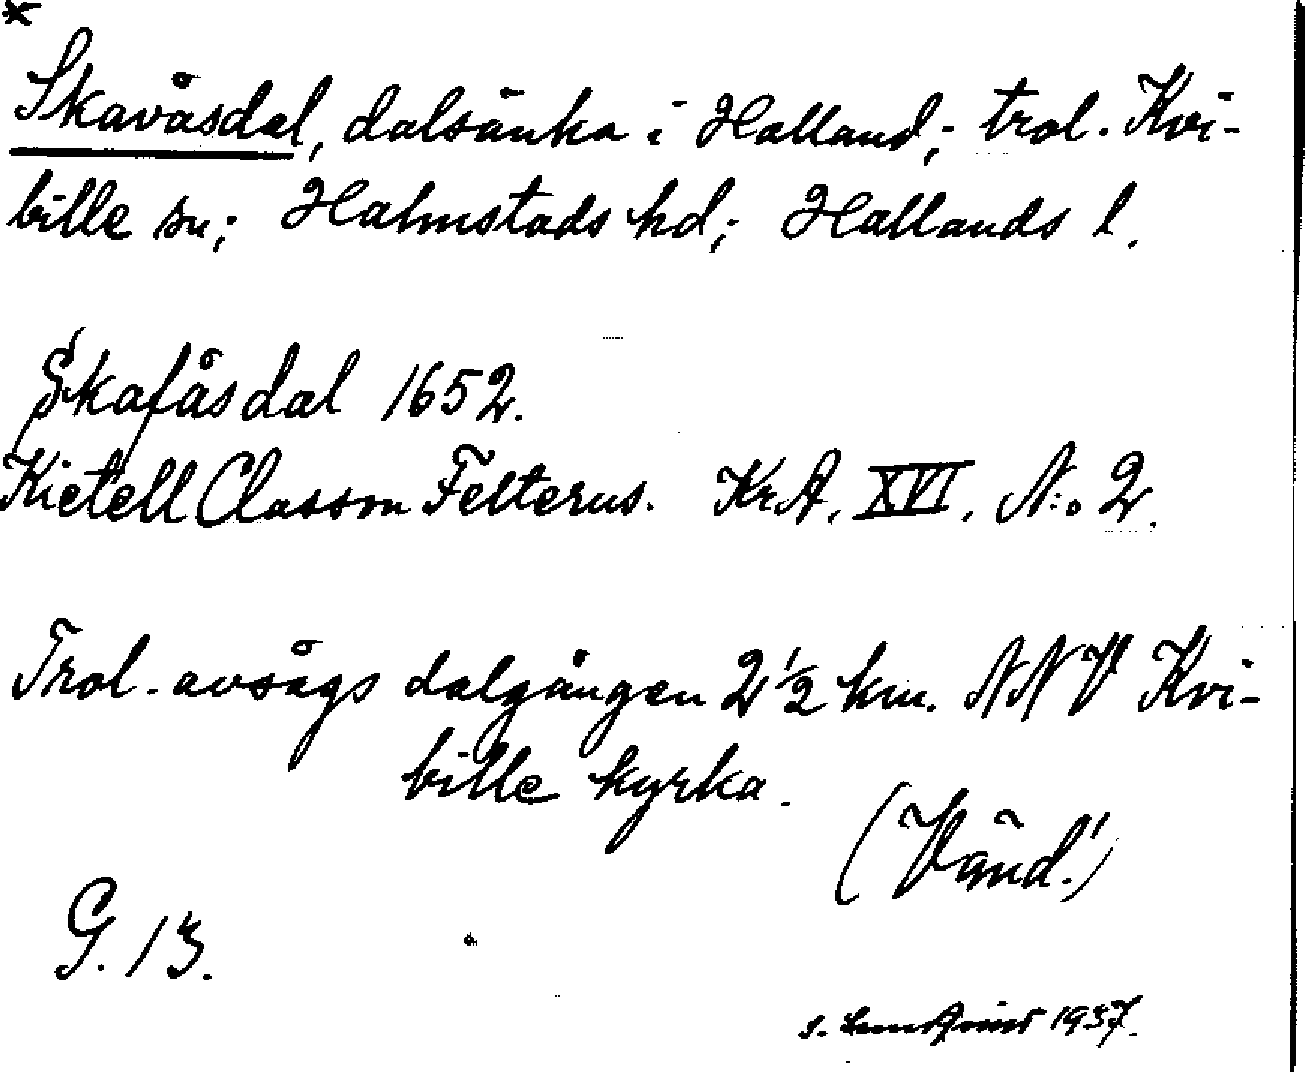 *
Skavåsdal, dalsänka i Halland; trol. Kvi-
bille sn; Halmstads hd; Hallands l.
Skafåsdal 1652.
Kietell Classon Felterus. KrA, XVI, N:o 2.
Trol. avsågs dalgången 2 1/2 km. NNV Kvi-
bille kyrka.
(Vänd!)
G. 13.
1937.